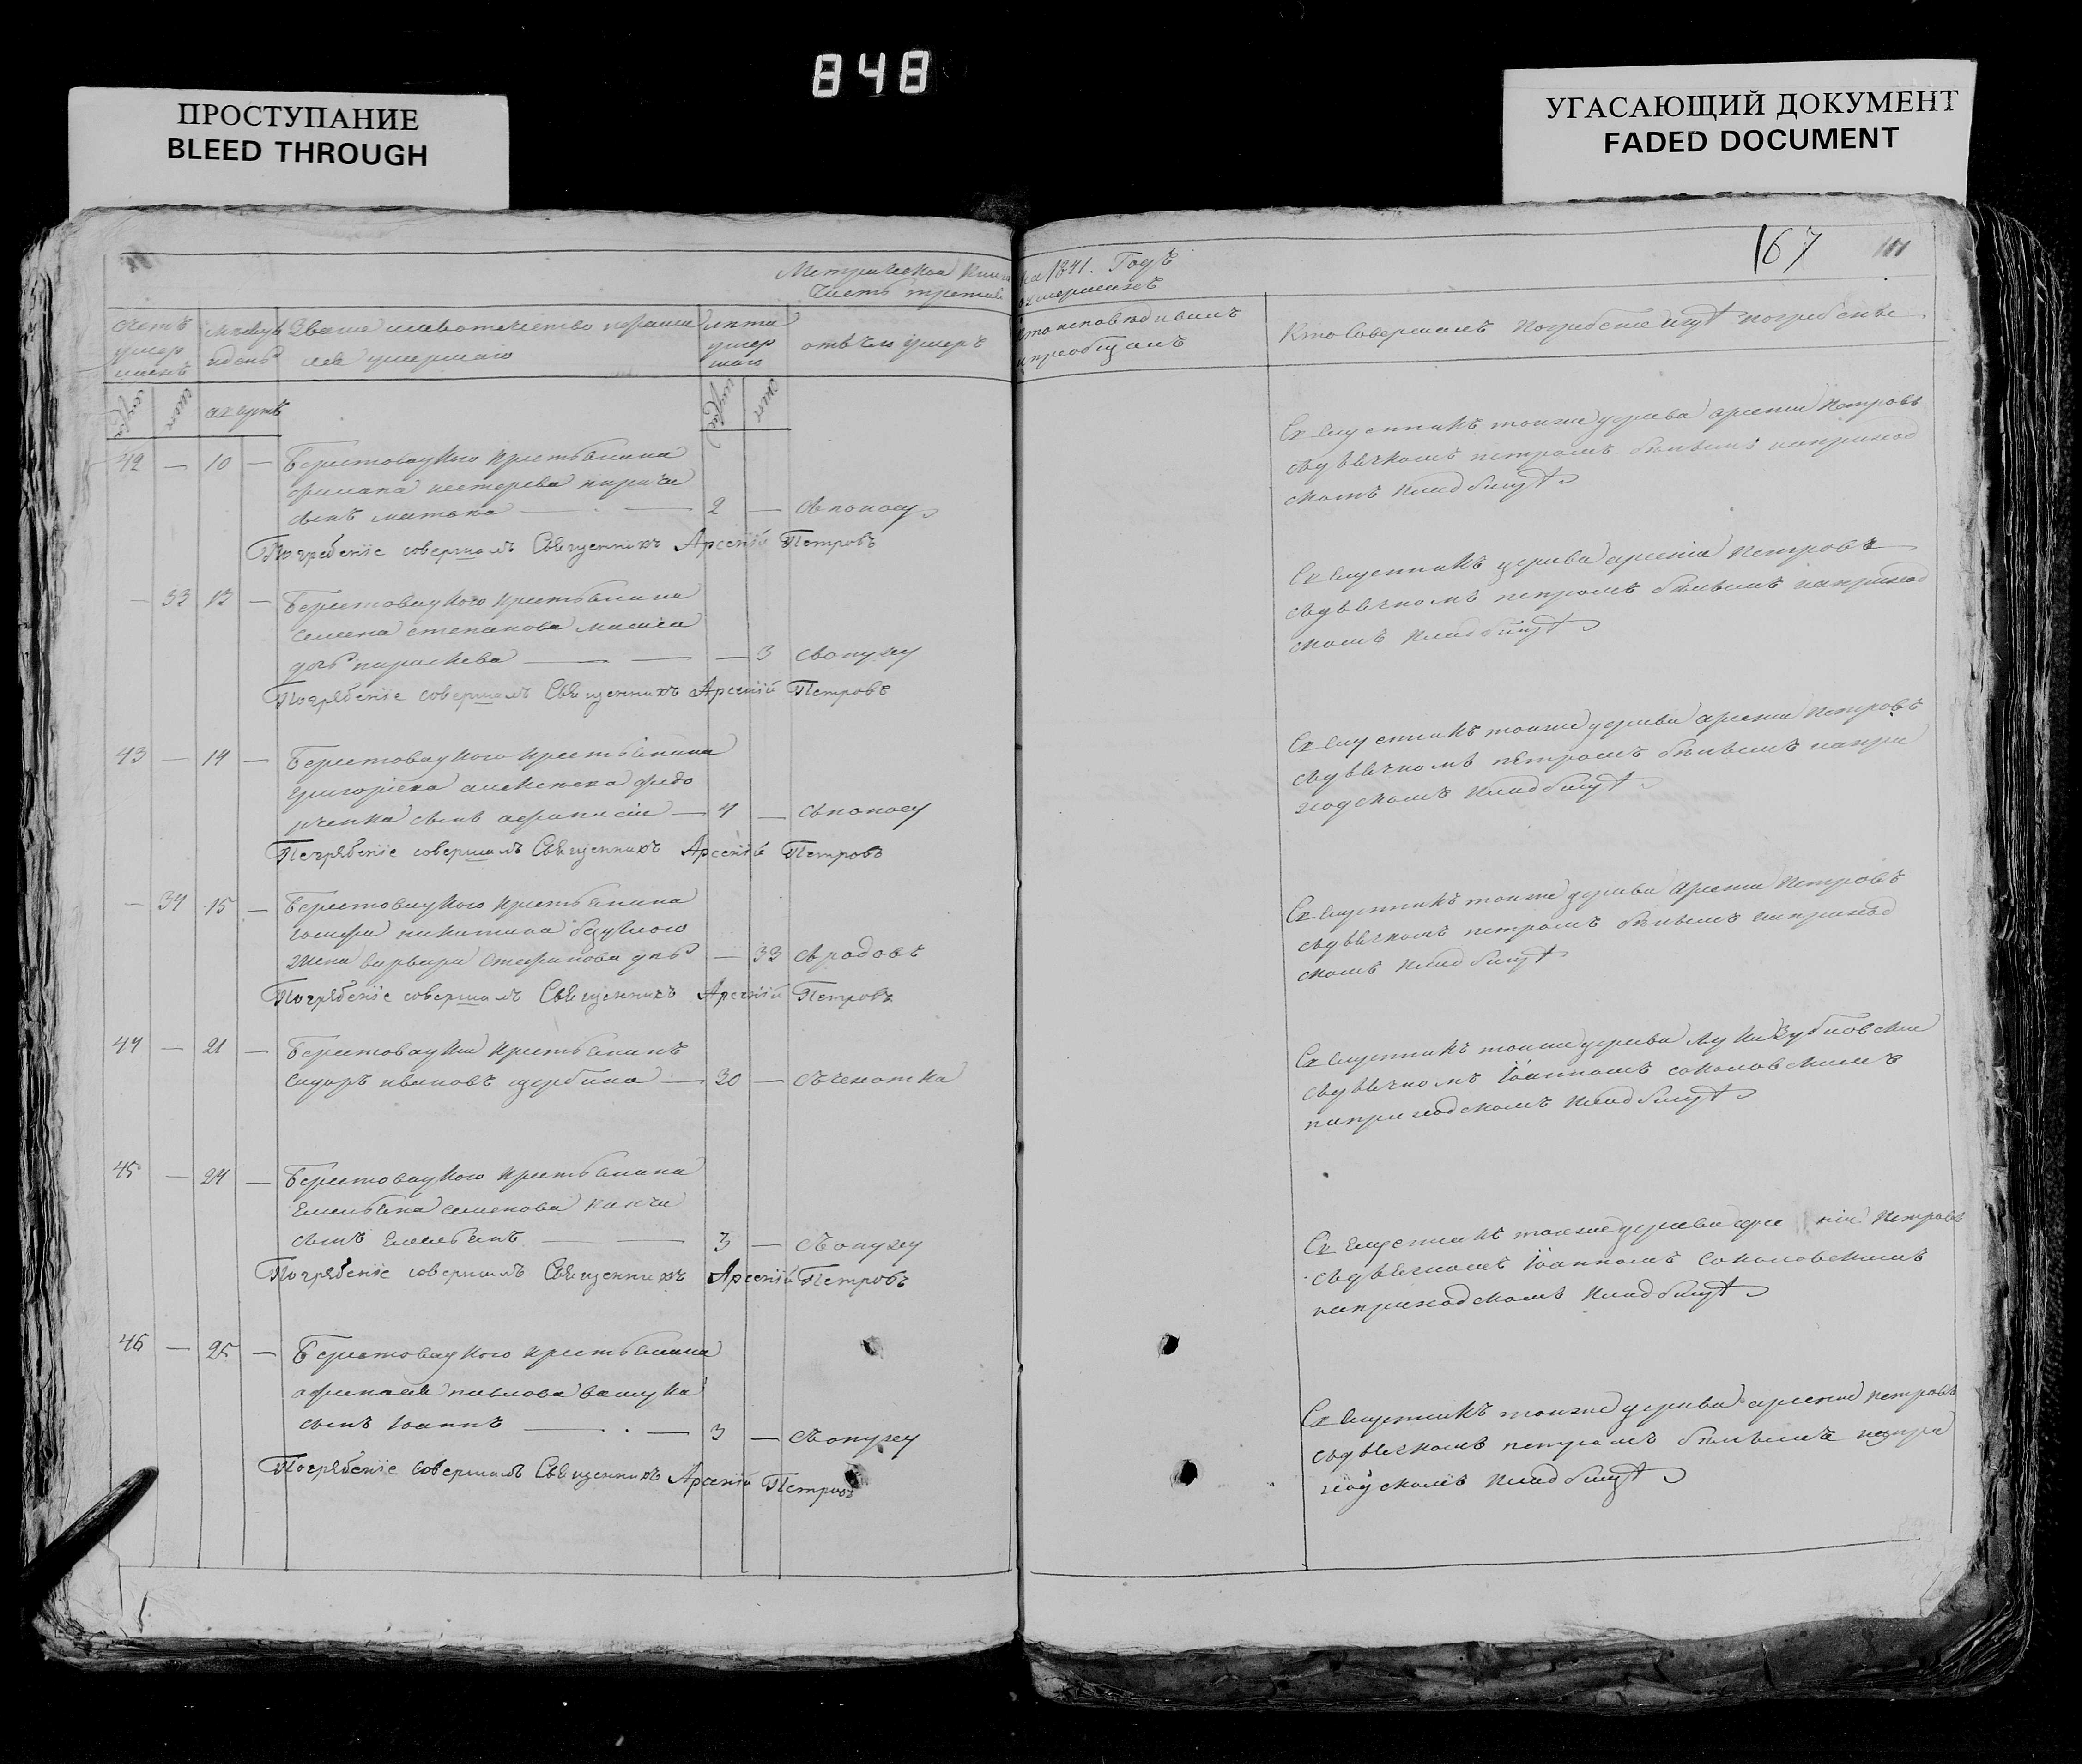 848
ПРОСТУПАНИЕ
BLEED THROUGH
УГАСАЮЩИЙ ДОКУМЕНТ
FADED DOCUMENT
167
Метрическая книга на 1841. Годъ
Часть третия о умершихъ
счетъ умершихъ
месяцъ и день
Звание имя отечество
умершаго
лета умершаго
отъ чего умеръ
кто исповедывалъ и приобщалъ
Кто Совершалъ погребение и где погребены
августъ
42 — 10 — Берестовацкого крестьянина
нестерова
сынъ — 2 — съ поносу
Погребенїе совершалъ Священникъ Арсенїй Петровъ
Священникъ тоиже церкви арсений Петровъ
съ дьячкомъ петромъ белымъ наприход
скомъ кладбищу
— 33 12 — Берестовацкого крестьянина
семена степанова
дочь параскева — — 3 съ опуху
Погрѣбенїе совершалъ Священникъ Арсенїй Петровъ
Священникъ церкви арсений Петровъ
съ дьячкомъ петромъ белымъ наприход
скомъ кладбищу
43 — 14 — Берестовацкого крестьянина
григория алексеева федо
рченка сынъ афанасие — 4 — съ поносу
Погрѣбенїе совершалъ Священникъ Арсенїй Петровъ
Священникъ тоиже церкви арсений Петровъ
съ дьячкомъ петромъ белымъ напри
ходскомъ кладбищу
— 34 15 — Берестовацкого крестьянина
никитина безуглого
жена варвара стефанова дочь — 33 съ родовъ
Погрѣбенїе совершалъ Священникъ Арсенїй Петровъ
Священникъ тоиже церкви Арсений Петровъ
съ дьячкомъ петромъ белымъ наприход
скомъ кладбищу
44 — 21 — Берестовацки крестьянинъ
сидоръ ивановъ щербина — 30 — съ чехотка
Священникъ тоиже церкви
съ дьячкомъ їоанномъ соколовскимъ
наприходскомъ кладбищу
45 — 24 — Берестовацкого крестьянина
Емельяна семенова
сынъ Емельянъ — 3 — съ опуху
Погрѣбенїе совершалъ Священникъ Арсенїй Петровъ
Священникъ тоиже церкви Петровъ
съ дьячкомъ їоанномъ Соколовскимъ
наприходскомъ кладбищу
46 — 25 — Берестовацкого крестьянина
афанасия павлова
сынъ їоаннъ — 3 — съ опуху
Погрѣбенїе совершалъ Священникъ Арсенїй Петровъ
Священникъ тоиже церкви арсений петровъ
съ дьячкомъ петромъ белымъ напри
ходскомъ кладбищу